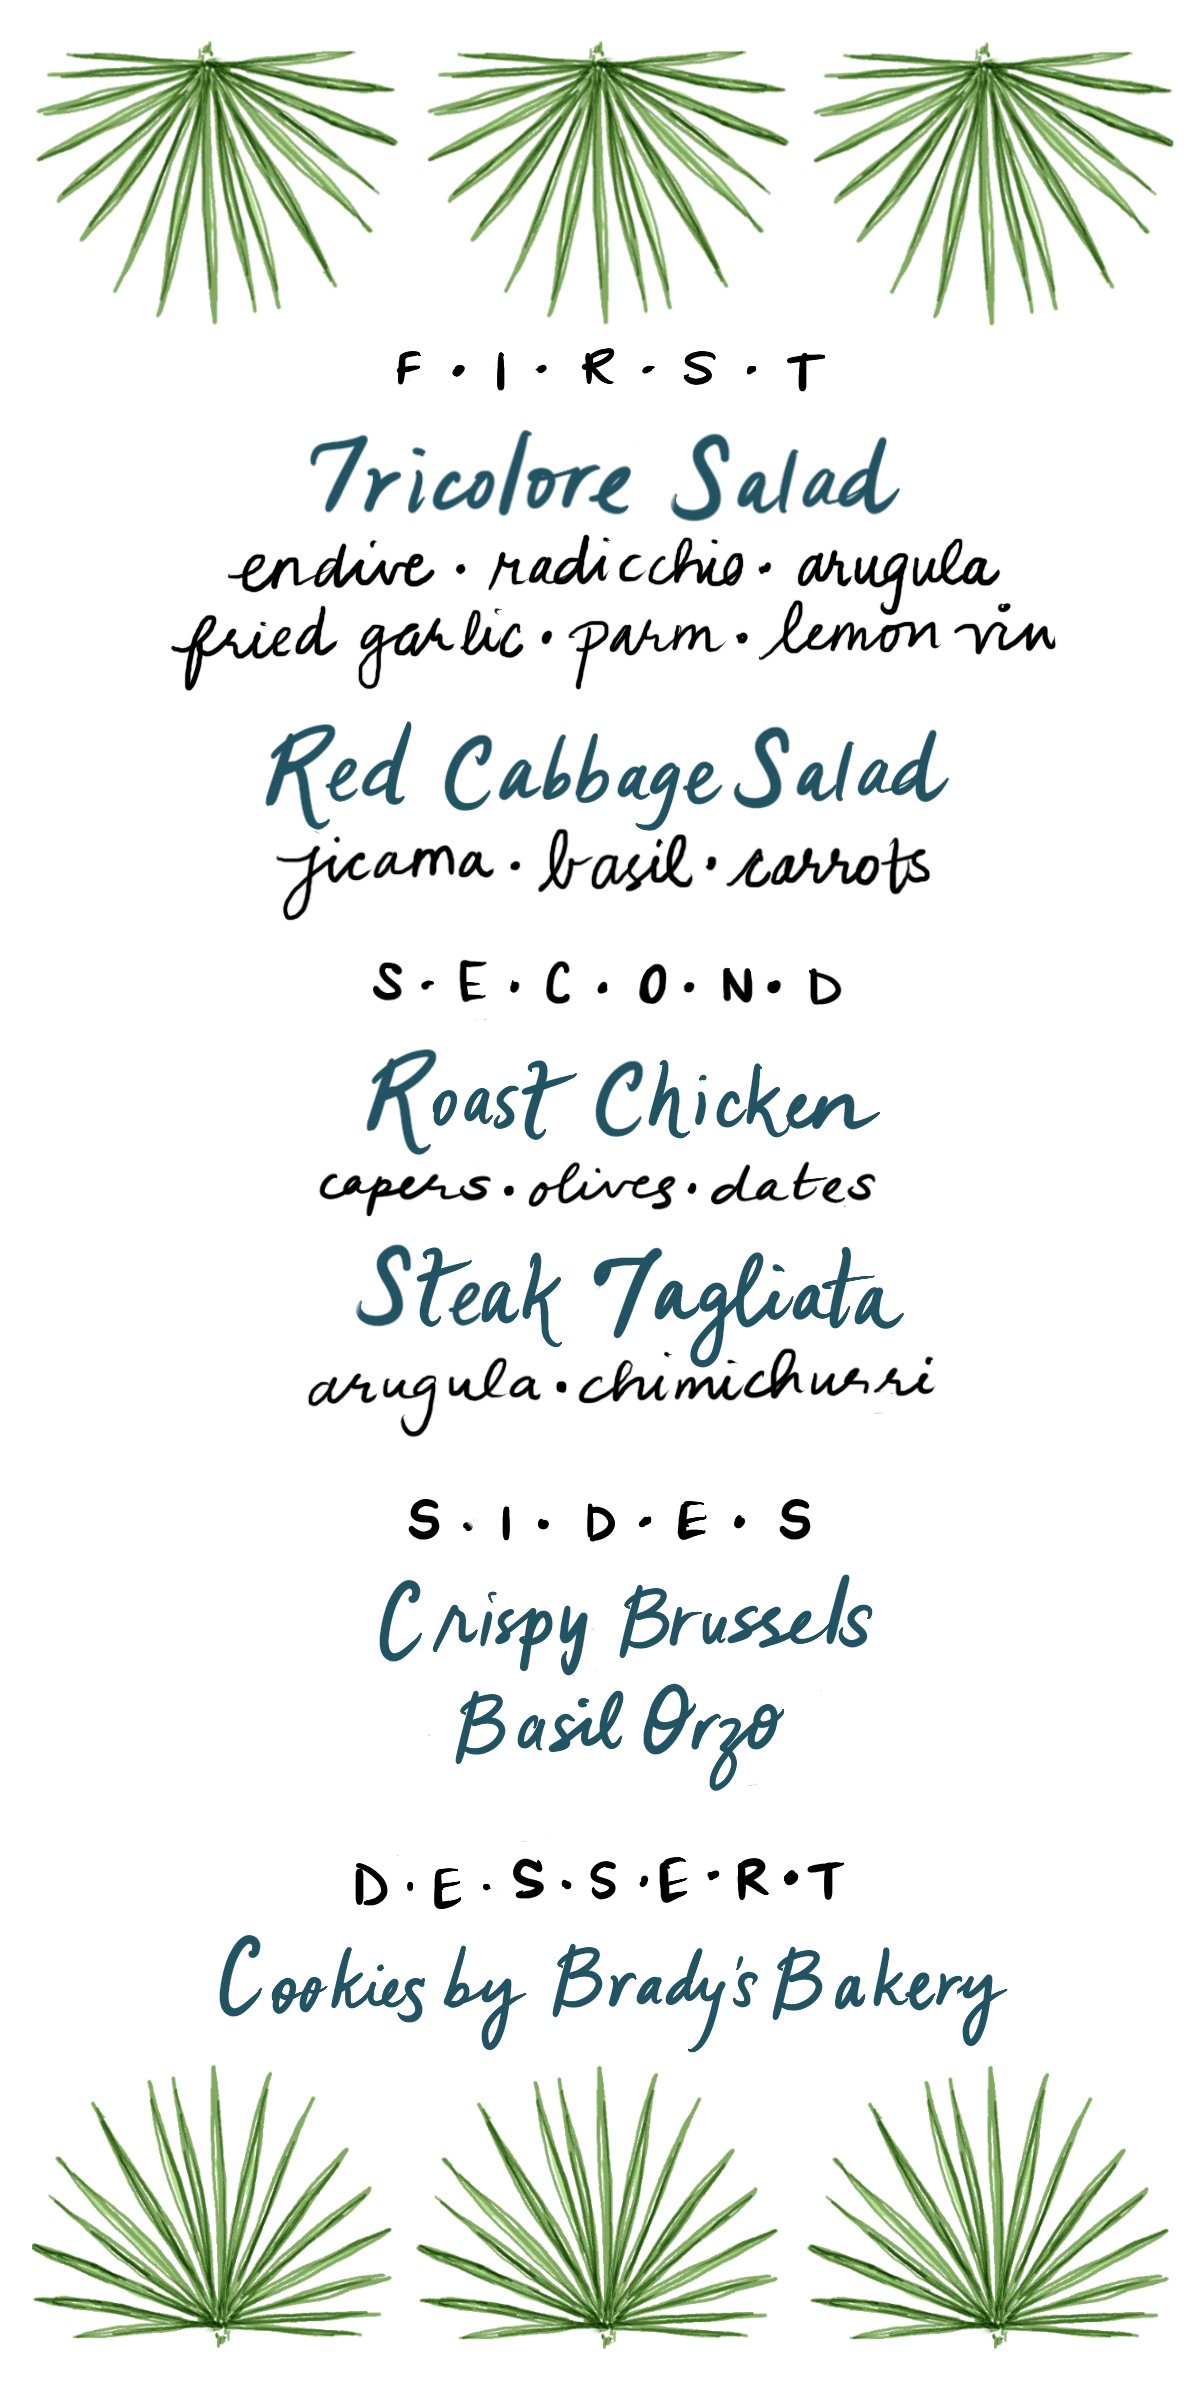 F · I · R · S · T
Tricolore Salad
endive · radicchio · arugula
fried garlic · parm · lemon vin
Red Cabbage Salad
jicama · basil · carrots
S · E · C · O · N · D
Roast Chicken
capers · olives · dates
Steak Tagliata
arugula · chimichurri
S · I · D · E · S
Crispy Brussels
Basil Orzo
D · E · S · S · E · R · T
Cookies by Brady's Bakery